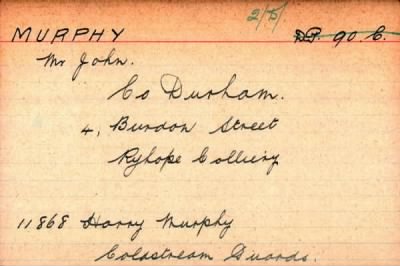 2/6/
MURPHY D.P. 90. C.
Mr John.
Co Durham.
4, Burdon Street
Ryhope Colliery
11868 Harry Murphy
Coldstream Guards.